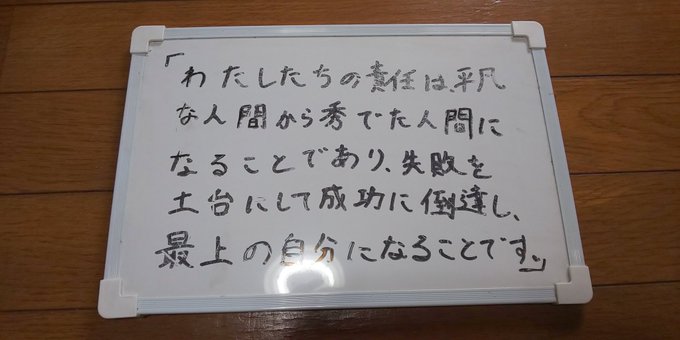 「わたしたちの責任は、平凡
な人間から秀でた人間に
なることであり、失敗を
土台にして成功に倒達し、
最上の自分になることです。」